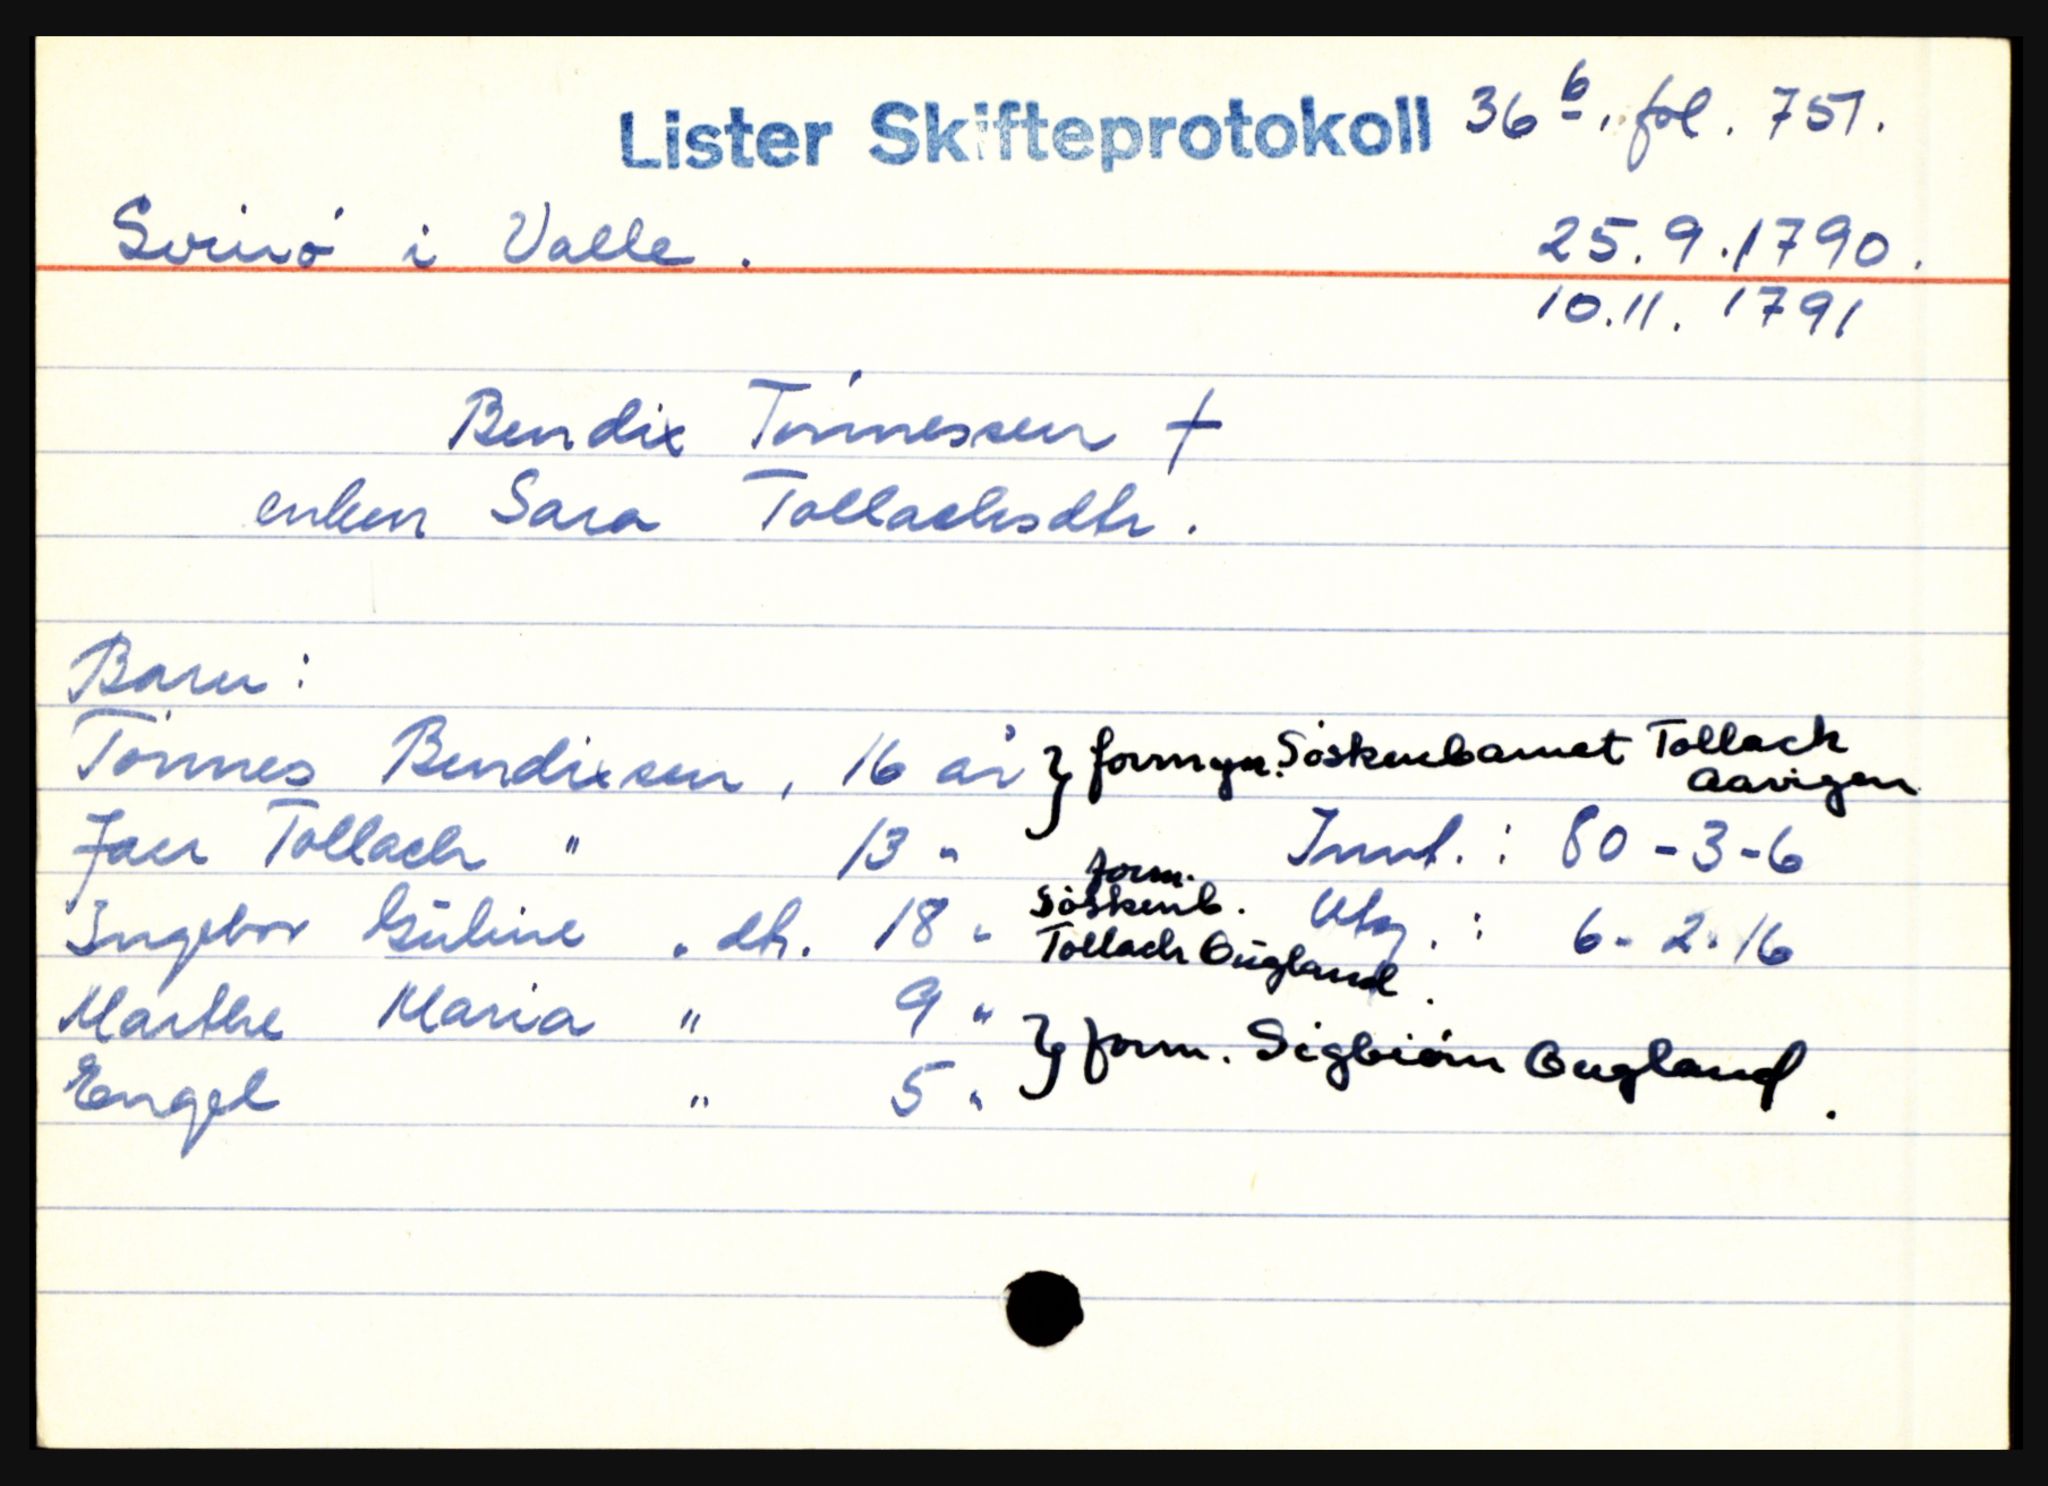 Lister Skifteprotokoll 36 b, fol. 751.
Svinö i Valle. 25.9.1790.
10.11.1791
Bendix Tönnessen †
enken Sara Tollachsdtr.
Barn:
Tönnes Bendixsen, 16 år } formyn. Söskenbarnet Tollach Aavigen
Jan Tollach " 13 "
Innt.: 80-3-6
Ingebor Gūline " dtr. 18 " form. Söskenb. Tollach Oūgland.
Utg.: 6-2-16
Marthe Maria " 9 " } form. Sigbiörn Ougland.
Engel " 5 "